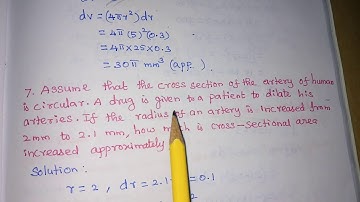 dv = (4πr²)dr
= 4π(5)²(0.3)
= 4π×25×0.3
= 30π mm³ (app.)
7. Assume that the cross section of the artery of human
is circular. A drug is given to a patient to dilate his
arteries. If the radius of an artery is increased from
2mm to 2.1 mm, how much is cross-sectional area
increased approximately
Solution :
r = 2, dr = 2.1 = 0.1